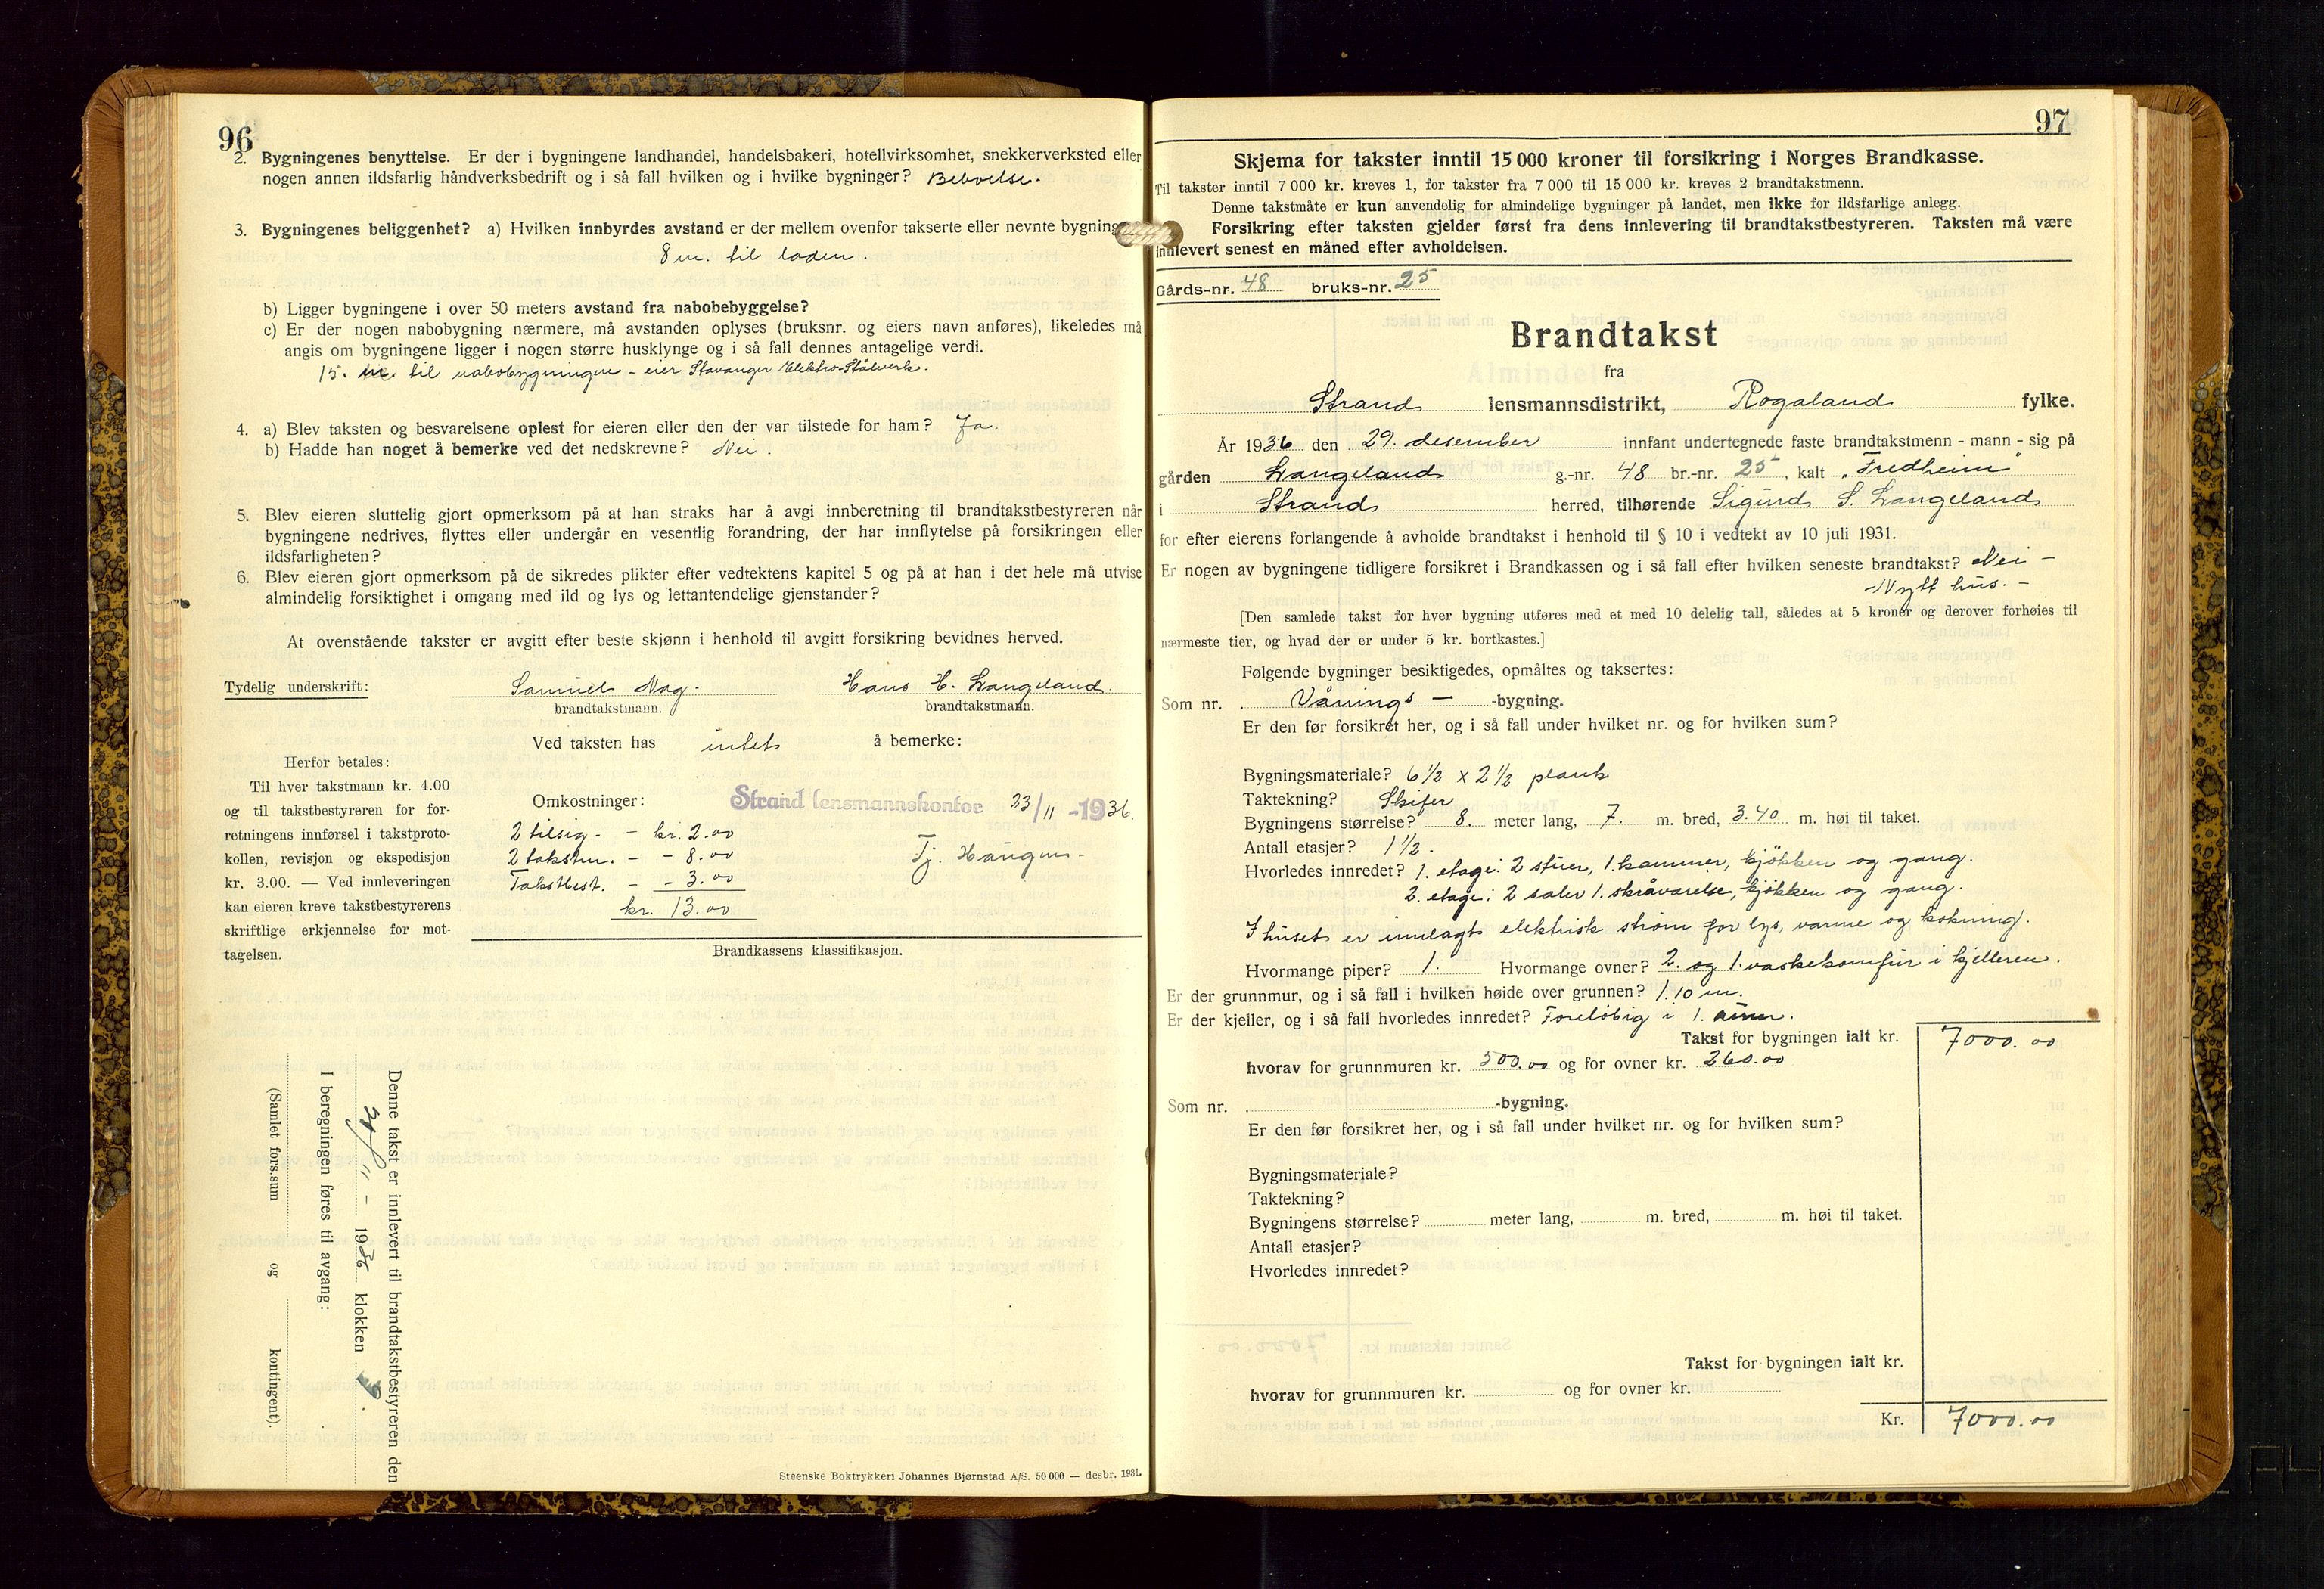 96
2. Bygningenes benyttelse. Er der i bygningene landhandel, handelsbakeri, hotellvirksomhet, snekkerverksted eller
nogen annen ildsfarlig håndverksbedrift og i så fall hvilken og i hvilke bygninger? Beboelse.
3. Bygningenes beliggenhet? a) Hvilken innbyrdes avstand er der mellem ovenfor takserte eller nevnte bygning
8 m. til laden.
b) Ligger bygningene i over 50 meters avstand fra nabobebyggelse?
c) Er der nogen nabobygning nærmere, må avstanden oplyses (bruksnr. og eiers navn anføres), likeledes må
angis om bygningene ligger i nogen større husklynge og i så fall dennes antagelige verdi.
15. m. til nabobygningen - eier Stavanger Elektro-Stålverk.
4. a) Blev taksten og besvarelsene oplest for eieren eller den der var tilstede for ham? Ja.
b) Hadde han noget å bemerke ved det nedskrevne? Nei.
5. Blev eieren sluttelig gjort opmerksom på at han straks har å avgi innberetning til brandtakstbestyreren når
bygningene nedrives, flyttes eller undergår en vesentlig forandring, der har innflytelse på forsikringen eller
ildsfarligheten?
6. Blev eieren gjort opmerksom på de sikredes plikter efter vedtektens kapitel 5 og på at han i det hele må utvise
almindelig forsiktighet i omgang med ild og lys og lettantendelige gjenstander?
At ovenstående takster er avgitt efter beste skjønn i henhold til avgitt forsikring bevidnes herved.
Tydelig underskrift: Samuel Nag. Hans H. Langeland.
brandtakstmann. brandtakstmann.
Ved taksten has intet å bemerke:
Herfor betales:
Til hver takstmann kr. 4.00
og til takstbestyreren for for-
retningens innførsel i takstproto-
kollen, revisjon og ekspedisjon
kr. 3.00. — Ved innleveringen
kan eieren kreve takstbestyrerens
skriftlige erkjennelse for mot-
tagelsen.
Omkostninger:
2 tilsig. - - kr. 2.00
2 takstm. - - 8.00
Takstbest. - - 3.00
kr. 13.00
Strand lensmannskontor 23/11 -1936.
Tj.
Brandkassens klassifikasjon.
Denne takst er innlevert til brandtakstbestyreren den
/11 - 1936 klokken
I beregningen føres til avgang:
(Samlet fors.sum og kontingent).
Steenske Boktrykkeri Johannes Bjørnstad A/S. 50 000 — desbr. 1931.
97
Skjema for takster inntil 15 000 kroner til forsikring i Norges Brandkasse.
Til takster inntil 7 000 kr. kreves 1, for takster fra 7 000 til 15 000 kr. kreves 2 brandtakstmenn.
Denne takstmåte er kun anvendelig for almindelige bygninger på landet, men ikke for ildsfarlige anlegg.
Forsikring efter taksten gjelder først fra dens innlevering til brandtakstbestyreren. Taksten må være
innlevert senest en måned efter avholdelsen.
Gårds-nr. 48 bruks-nr. 25
Brandtakst
fra
Strand lensmannsdistrikt, Rogaland fylke.
År 1936 den 29. desember innfant undertegnede faste brandtakstmenn - mann - sig på
gården Langeland g.-nr. 48 br.-nr. 25, kalt „Fredheim"
i Strand herred, tilhørende Sigurd S. Langeland
for efter eierens forlangende å avholde brandtakst i henhold til § 10 i vedtekt av 10 juli 1931.
Er nogen av bygningene tidligere forsikret i Brandkassen og i så fall efter hvilken seneste brandtakst? Nei -
- Nytt hus. -
[Den samlede takst for hver bygning utføres med et med 10 delelig tall, således at 5 kroner og derover forhøies til
nærmeste tier, og hvad der er under 5 kr. bortkastes.]
Følgende bygninger besiktigedes, opmåltes og taksertes:
Som nr. . Vånings — -bygning.
Er den før forsikret her, og i så fall under hvilket nr. og for hvilken sum?
Bygningsmateriale? 6 1/2 x 2 1/2 plank
Taktekning? Skifer
Bygningens størrelse? 8. meter lang, 7. m. bred, 3.40 m. høi til taket.
Antall etasjer? 1 1/2.
Hvorledes innredet? 1. etage: 2 stuer, 1. kammer, kjøkken og gang.
2. etage: 2 saler 1. skråværelse, kjøkken og gang.
I huset er innlagt elektrisk strøm for lys, varme og kokning.
Hvormange piper? 1. Hvormange ovner? 2. og 1. vaskekomfur i kjelleren.
Er der grunnmur, og i så fall i hvilken høide over grunnen? 1.10 m.
Er der kjeller, og i så fall hvorledes innredet? Foreløbig i 1.
Takst for bygningen ialt kr. 7000.00
hvorav for grunnmuren kr. 500.00 og for ovner kr. 260.00
Som nr. . -bygning.
Er den før forsikret her, og i så fall under hvilket nr. og for hvilken sum?
Bygningsmateriale?
Taktekning?
Bygningens størrelse? meter lang, m. bred, m. høi til taket.
Antall etasjer?
Hvorledes innredet?
Takst for bygningen ialt kr.
hvorav for grunnmuren kr. og for ovner kr.
Kr. 7000.00